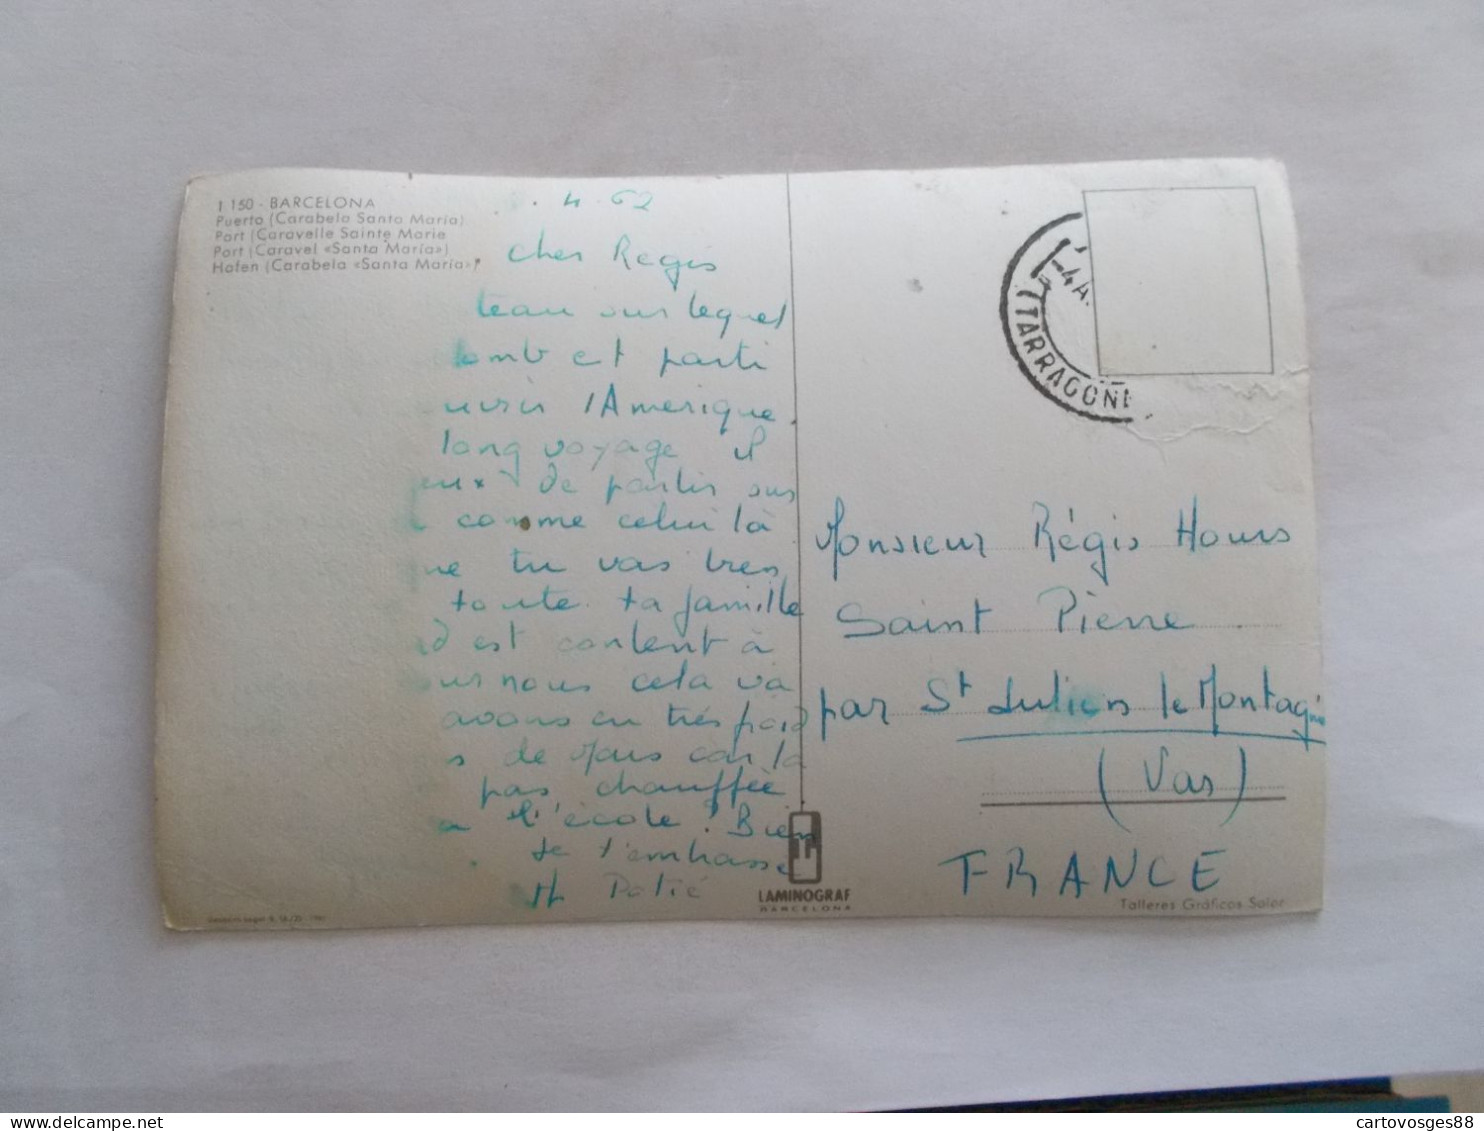 1.150 - BARCELONA
Puerto (Carabela Santa María)
Port (Caravelle Sainte Marie
Port (Caravel «Santa María»)
Hafen (Carabela «Santa María»)
4 62
cher Régis
teau sur lequel
omb et parti
uvrir l'Amérique
long voyage il
eux de partir sur
comme celui là
ue tu vas très
toute ta famille
d est content à
ur nous cela va
avons eu très froid
s de Mars car la
pas chauffée
à l'école. Bien
Je t'embrasse
LAMINOGRAF
BARCELONA
(TARRAGONE
-4 A
Monsieur Régis Hours
Saint Pierre
par St Julien le Montagnier
(Var)
FRANCE
Talleres Gráficos Soler
cartovosges88